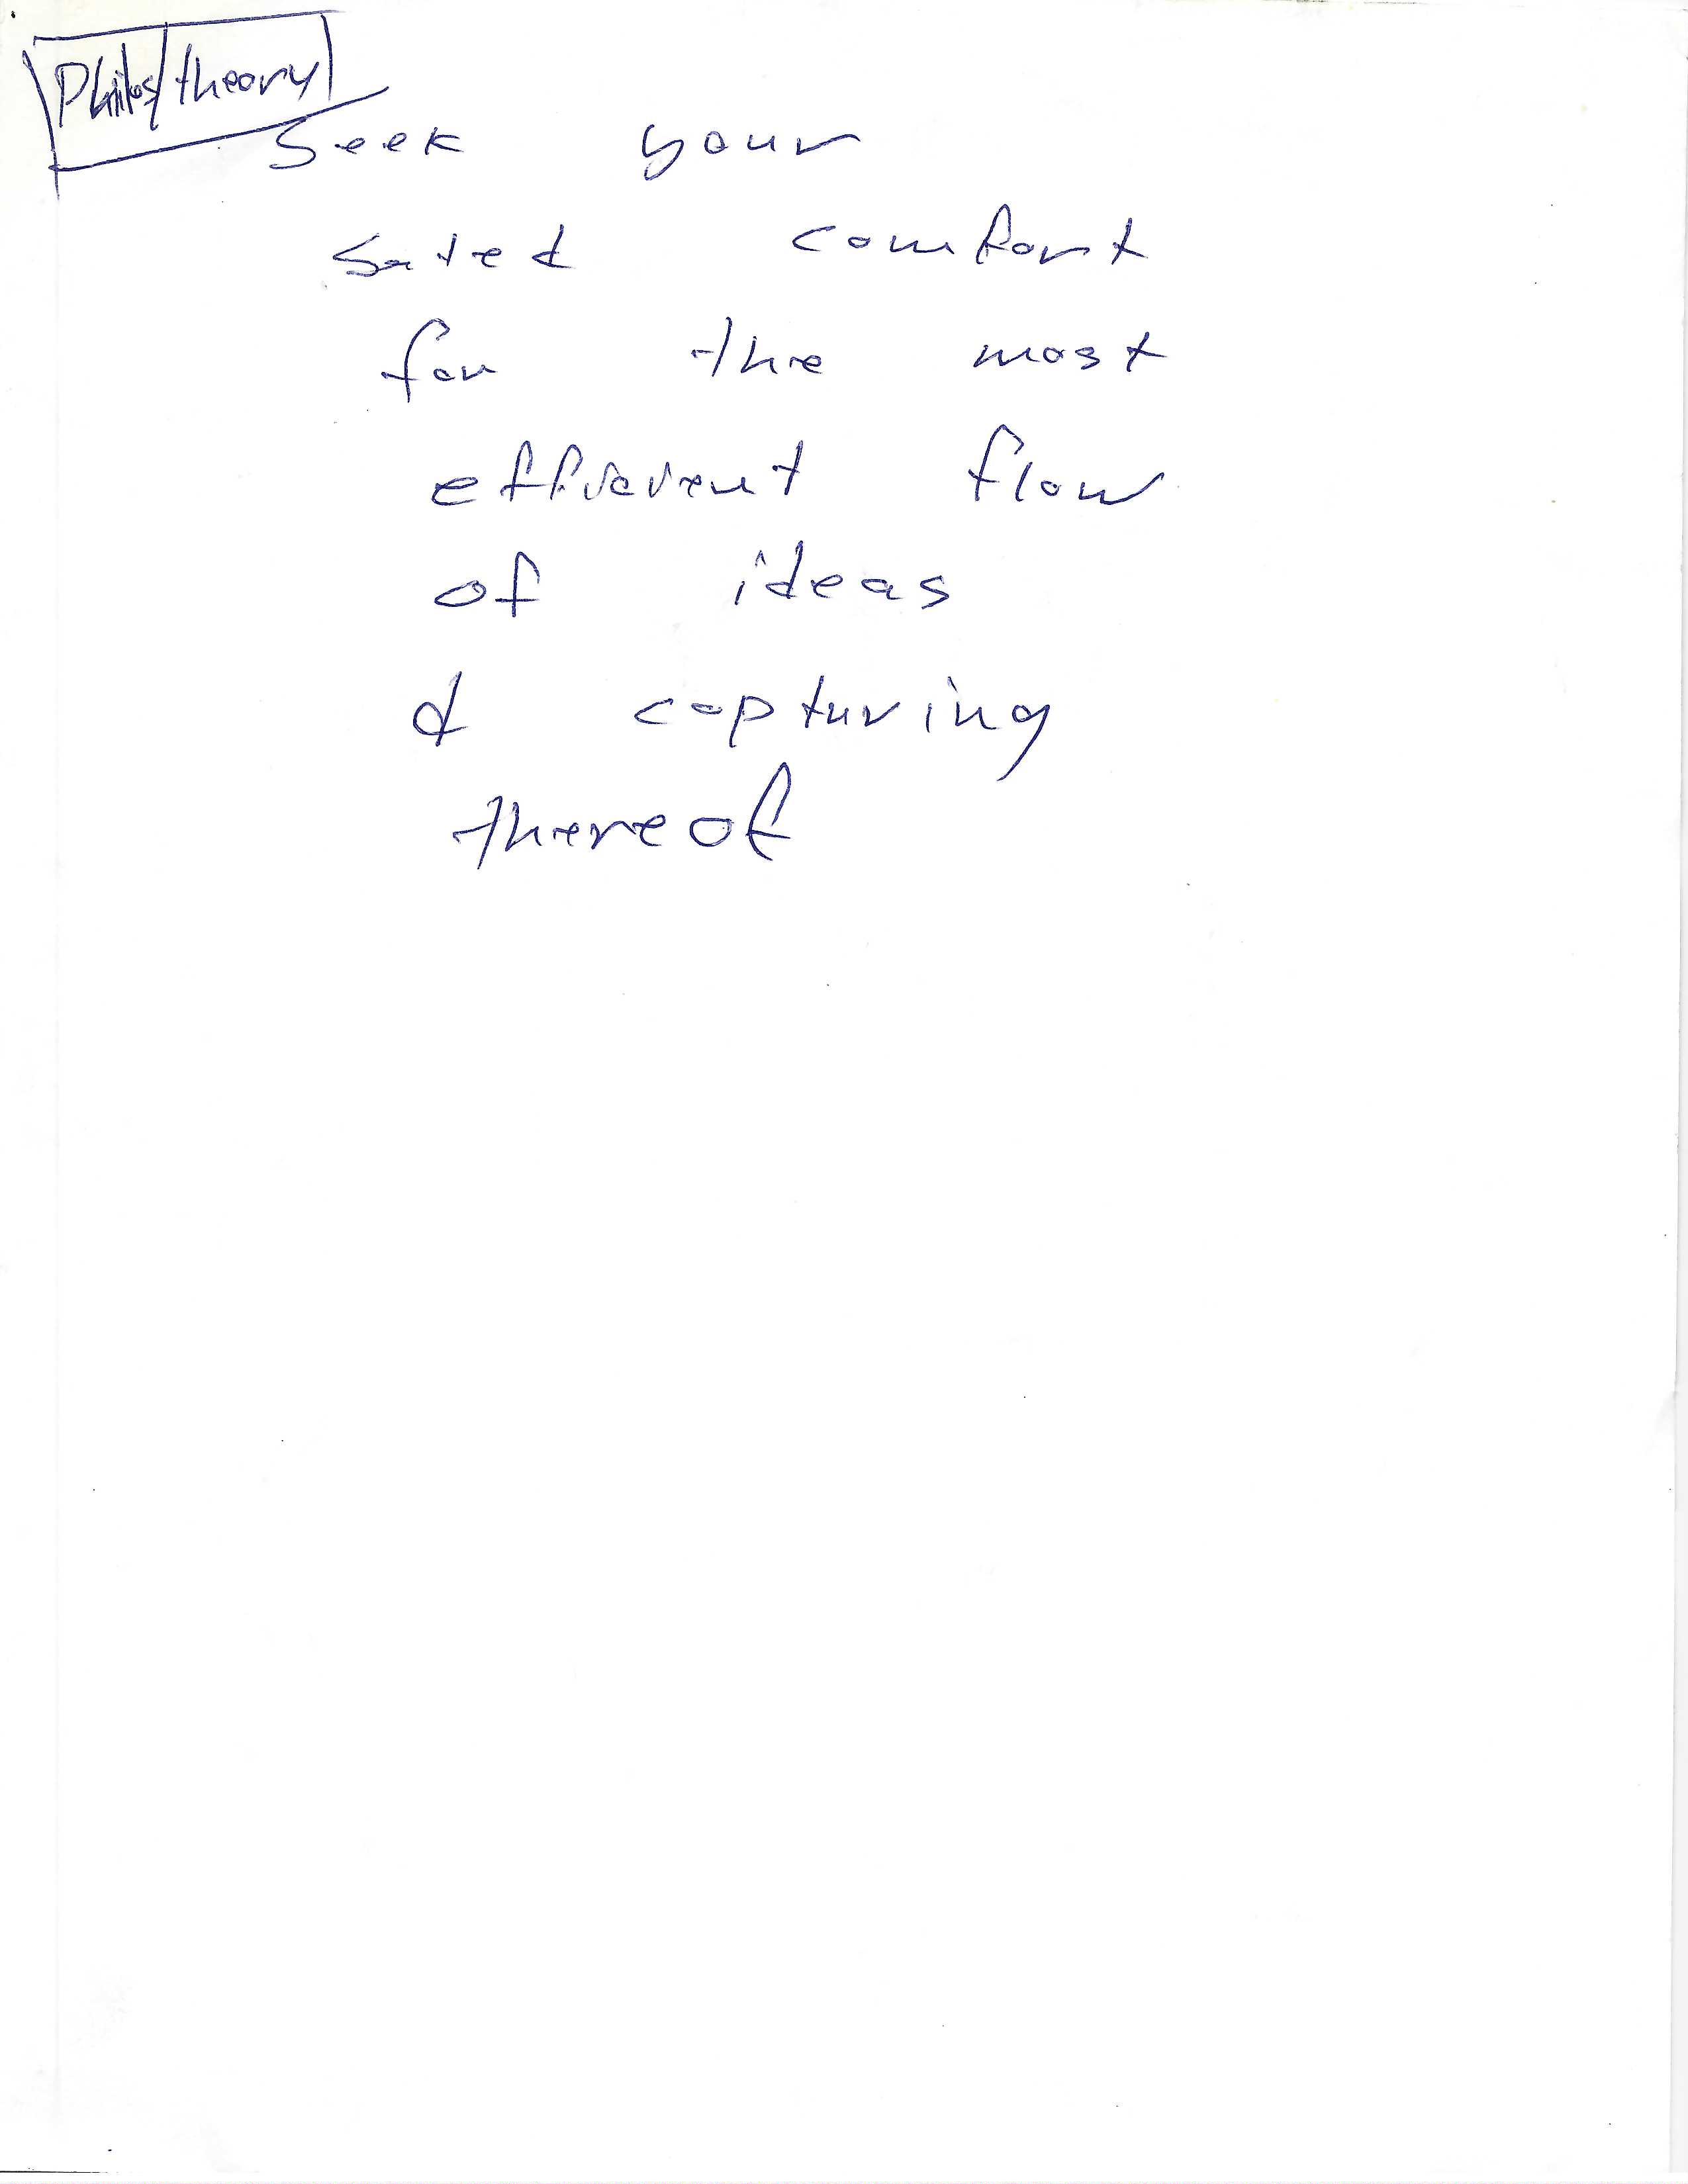 Philos/theory
Seek your
sated comfort
for the most
efficient flow
of ideas
& capturing
thereof